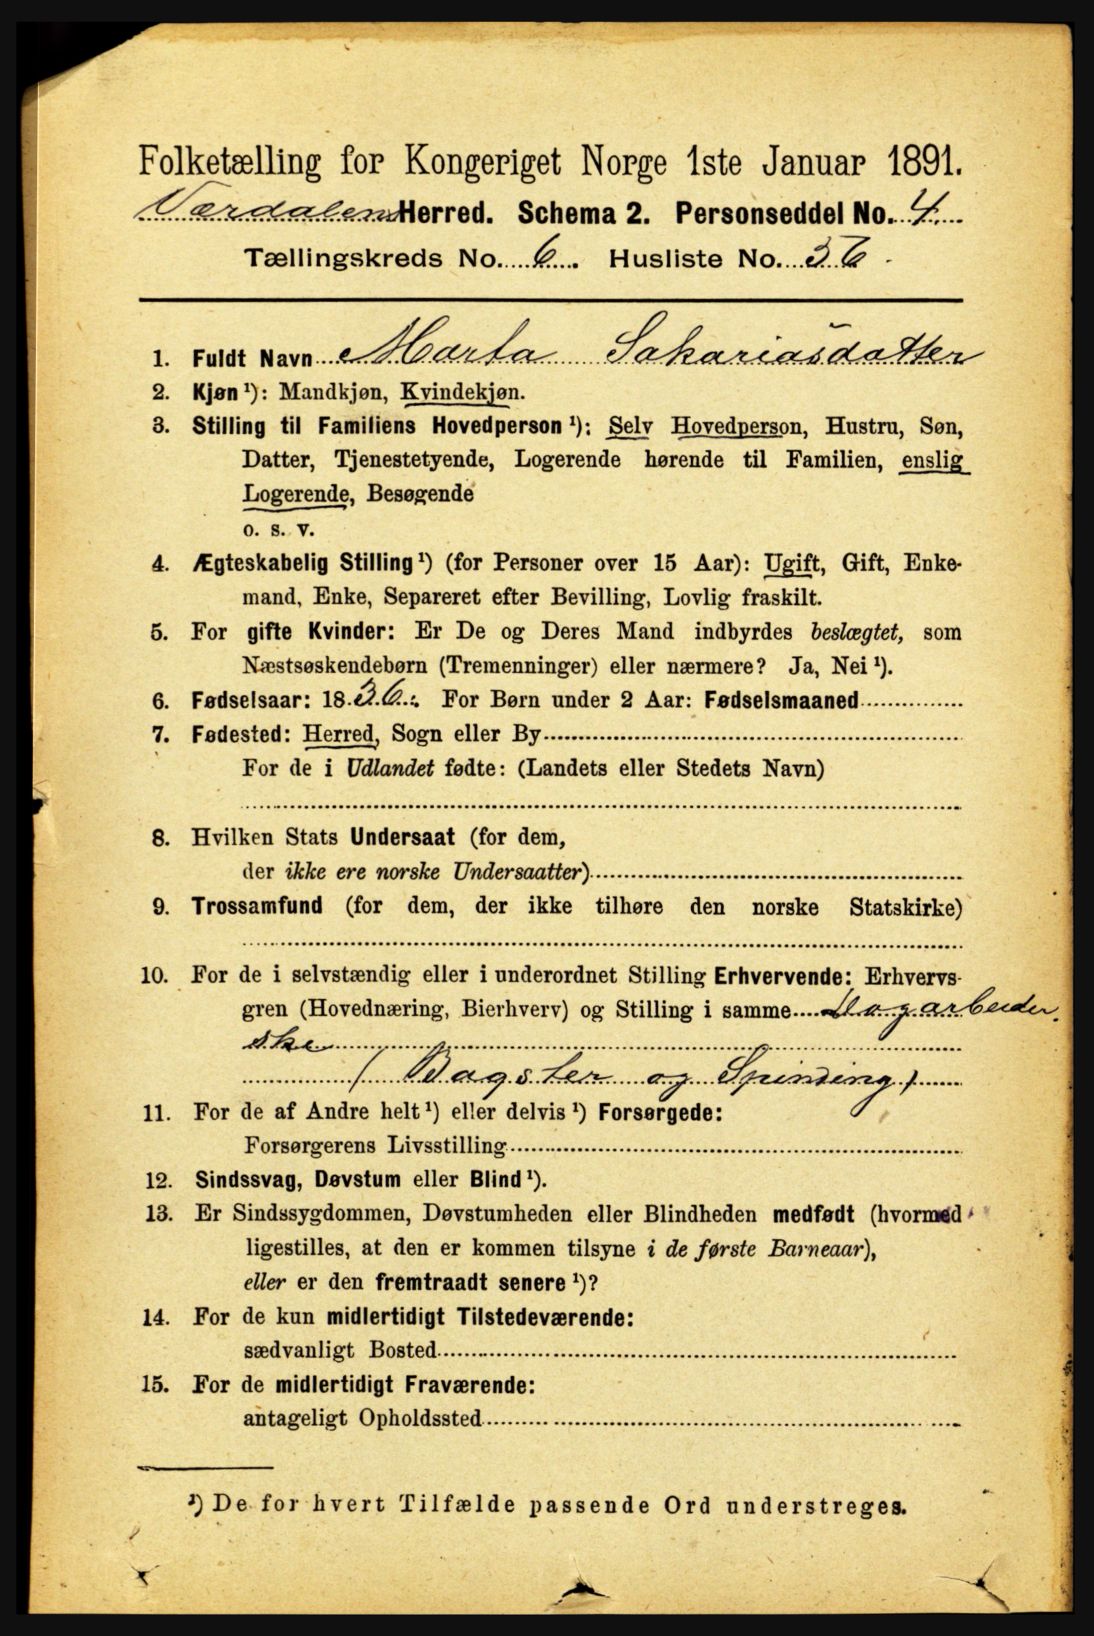 Folketælling for Kongeriget Norge 1ste Januar 1891.
Værdalens Herred. Schema 2. Personseddel No. 4.
Tællingskreds No. 6. Husliste No. 36.
1. Fuldt Navn Marta Sakariasdatter
2. Kjøn ¹): Mandkjøn, Kvindekjøn.
3. Stilling til Familiens Hovedperson ¹): Selv Hovedperson, Hustru, Søn,
Datter, Tjenestetyende, Logerende hørende til Familien, enslig
Logerende, Besøgende
o. s. v.
4. Ægteskabelig Stilling ¹) (for Personer over 15 Aar): Ugift, Gift, Enke-
mand, Enke, Separeret efter Bevilling, Lovlig fraskilt.
5. For gifte Kvinder: Er De og Deres Mand indbyrdes beslægtet, som
Næstsøskendebørn (Tremenninger) eller nærmere? Ja, Nei ¹).
6. Fødselsaar: 1836. For Børn under 2 Aar: Fødselsmaaned
7. Fødested: Herred, Sogn eller By
For de i Udlandet fødte: (Landets eller Stedets Navn)
8. Hvilken Stats Undersaat (for dem,
der ikke ere norske Undersaatter)
9. Trossamfund (for dem, der ikke tilhøre den norske Statskirke)
10. For de i selvstændig eller i underordnet Stilling Erhvervende: Erhvervs-
gren (Hovednæring, Bierhverv) og Stilling i samme Dagarbeider
ske
(Bagster og Spinding)
11. For de af Andre helt ¹) eller delvis ¹) Forsørgede:
Forsørgerens Livsstilling
12. Sindssvag, Døvstum eller Blind ¹).
13. Er Sindssygdommen, Døvstumheden eller Blindheden medfødt (hvormed
ligestilles, at den er kommen tilsyne i de første Barneaar),
eller er den fremtraadt senere ¹)?
14. For de kun midlertidigt Tilstedeværende:
sædvanligt Bosted
15. For de midlertidigt Fraværende:
antageligt Opholdssted
¹) De for hvert Tilfælde passende Ord understreges.